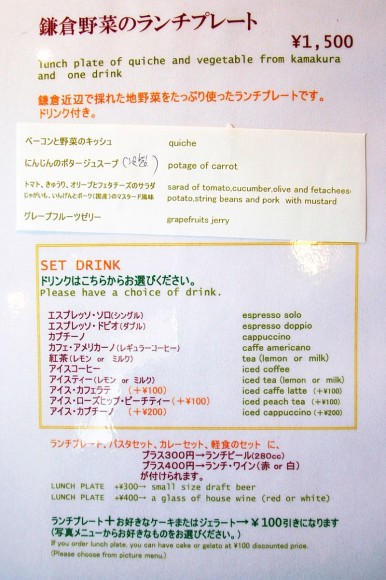 鎌倉野菜のランチプレート
¥1,500
lunch plate of quiche and vegetable from kamakura
and one drink
鎌倉近辺で採れた地野菜をたっぷり使ったランチプレートです。
ドリンク付き。
ベーコンと野菜のキッシュ quiche
にんじんのポタージュスープ(冷製) potage of carrot
トマト、きゅうり、オリーブとフェタチーズのサラダ sarad of tomato,cucumber,olive and fetacheese
じゃがいも、いんげんとポーク(国産)のマスタード風味 potato,string beans and pork with mustard
グレープフルーツゼリー grapefruits jerry
SET DRINK
ドリンクはこちらからお選びください。
Please have a choice of drink.
エスプレッソ・ソロ(シングル) espresso solo
エスプレッソ・ドピオ(ダブル) espresso doppio
カプチーノ cappuccino
カフェ・アメリカーノ(レギュラーコーヒー) caffe americano
紅茶(レモン or ミルク) tea (lemon or milk)
アイスコーヒー iced coffee
アイスティー(レモン or ミルク) iced tea (lemon or milk)
アイス・カフェラテ (+¥100) iced caffe latte (+¥100)
アイス・ローズヒップ・ピーチティー(+¥100) iced peach tea (+¥100)
アイス・カプチーノ (+¥200) iced cappuccino (+¥200)
ランチプレート、パスタセット、カレーセット、軽食のセット に、
プラス300円→ランチビール(280cc)
プラス400円→ランチ・ワイン(赤 or 白)
が付けられます。
LUNCH PLATE +¥300→ small size draft beer
LUNCH PLATE +¥400→ a glass of house wine (red or white)
ランチプレート+お好きなケーキまたはジェラート→¥100引きになります
(写真メニューからお好きなものをお選びください。)
If you order lunch plate, you can have cake or gelato at ¥100 discounted price.
(Please choose from picture menu.)